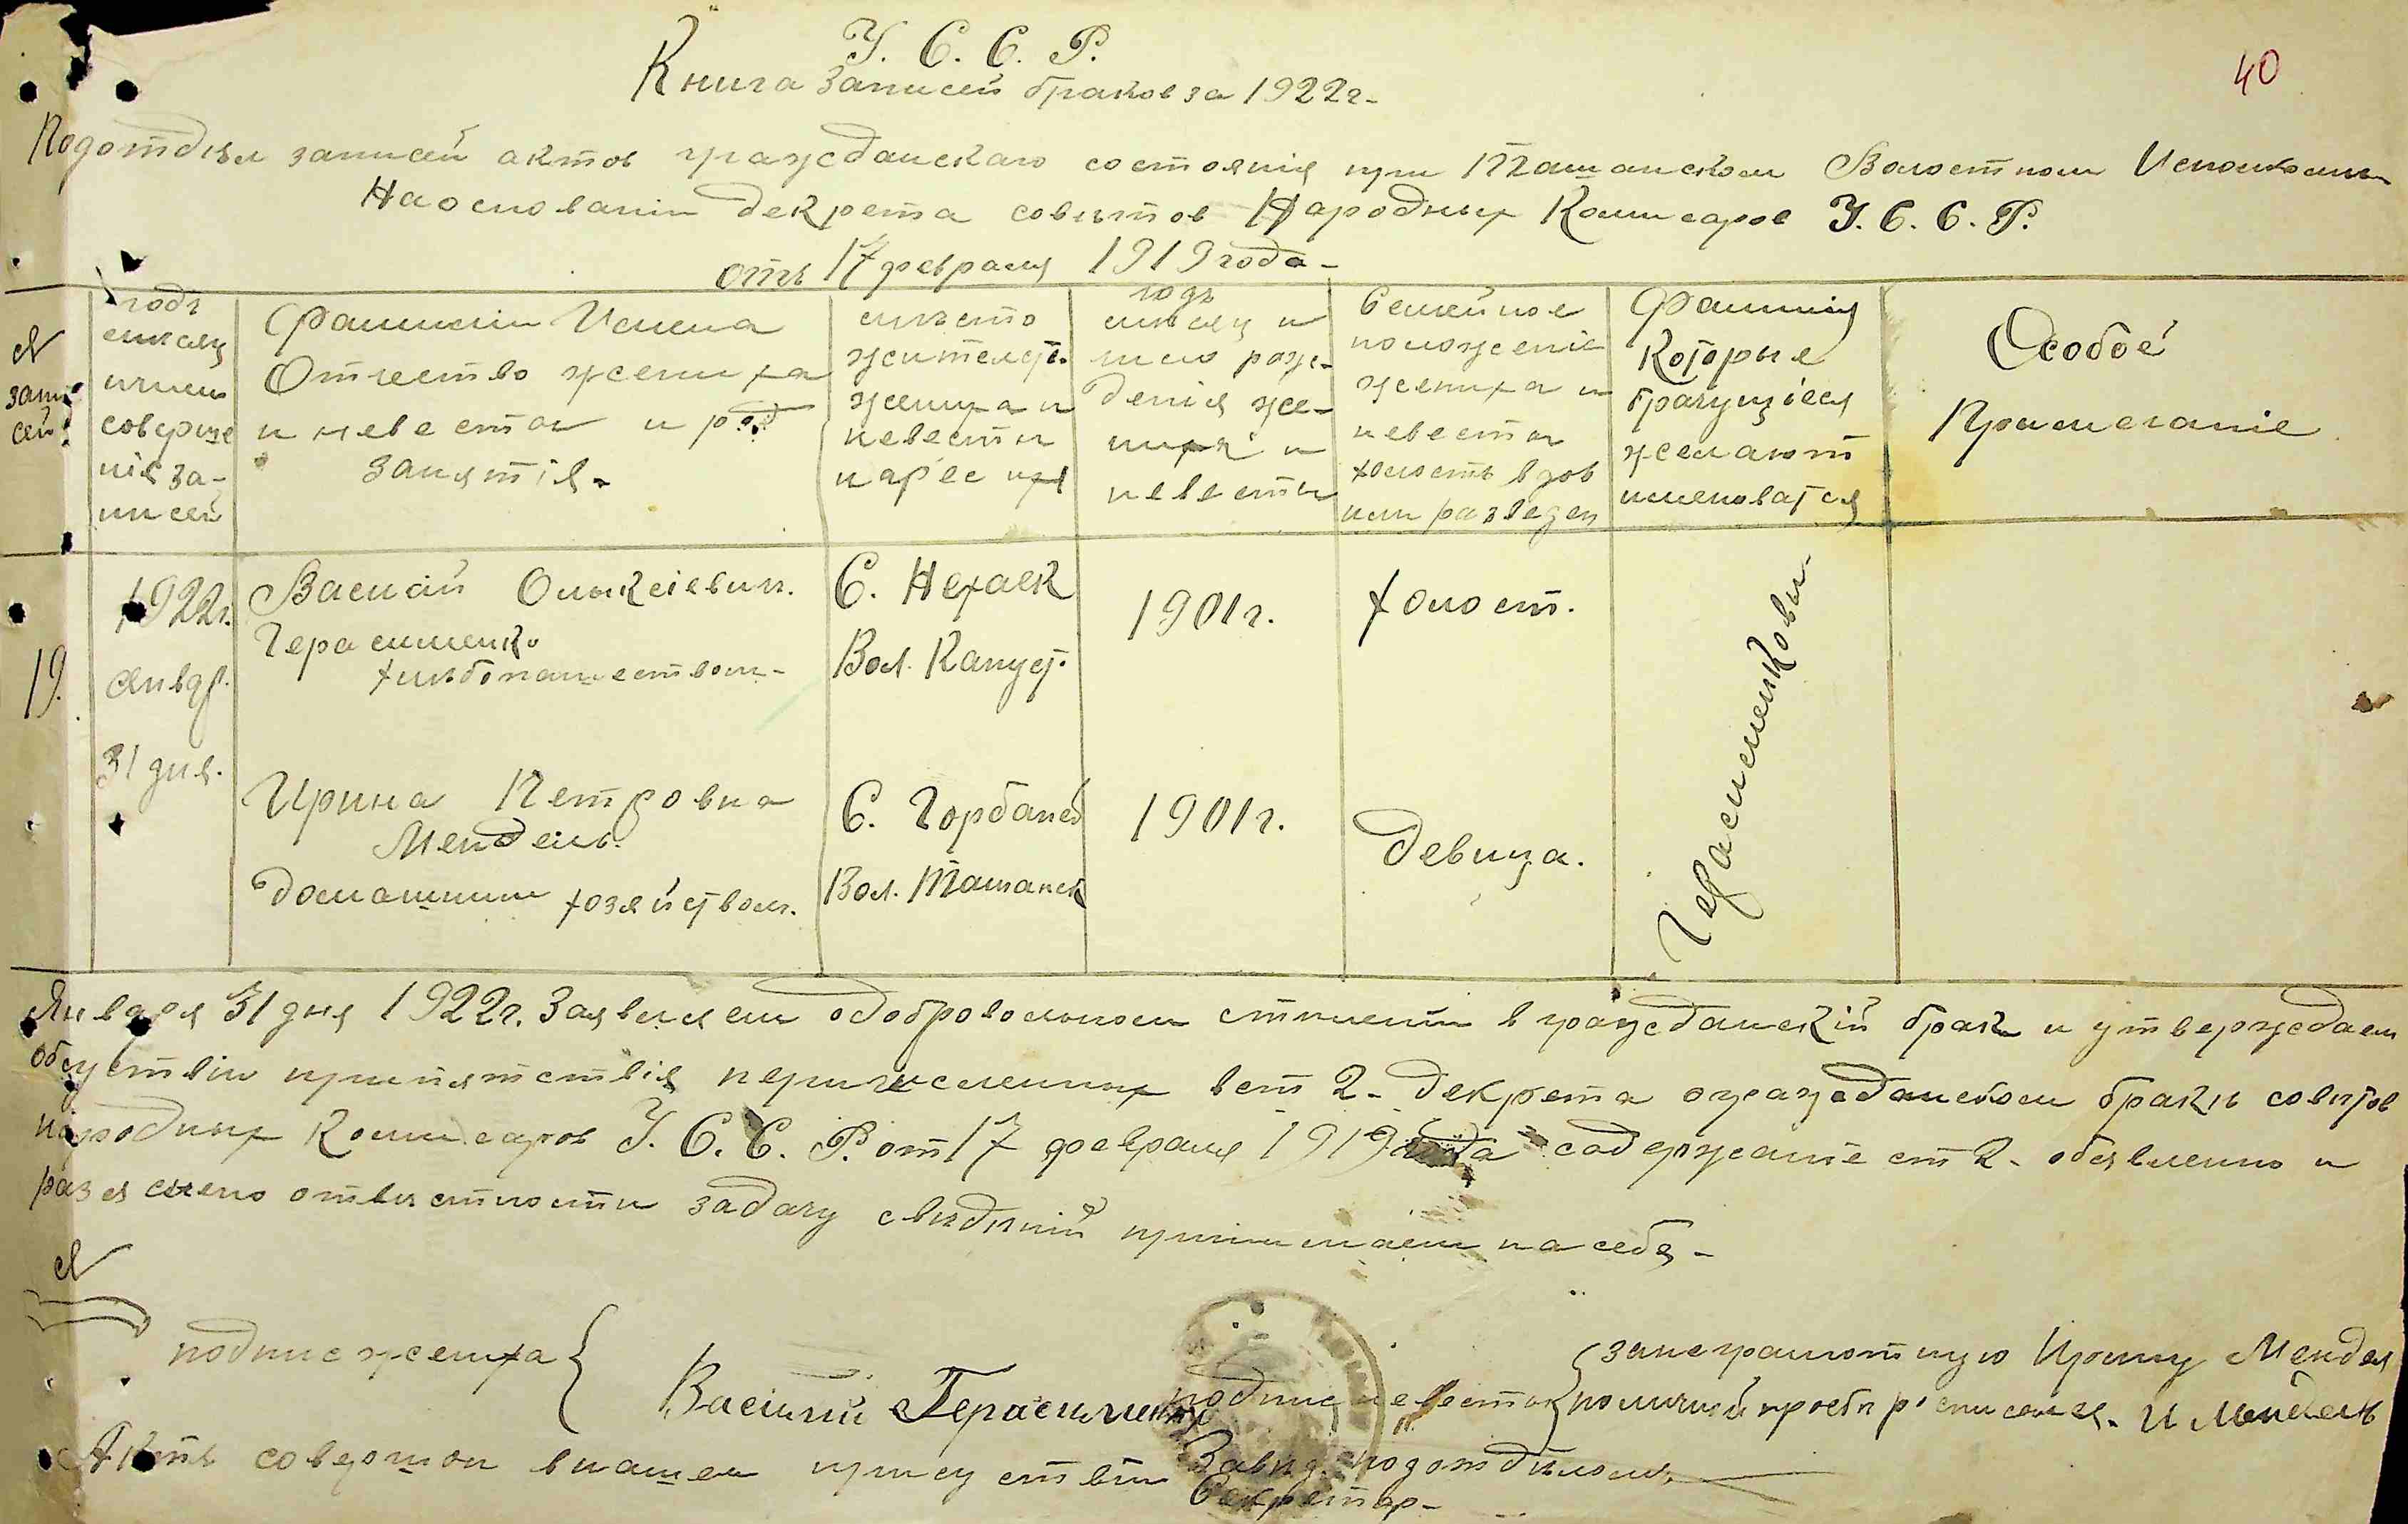 У. С. С. Р.
40
Книга Записей браков за 1922 г-
Подотдел записей актов гражданскаго состоянія при Ташанском Волостном Исполкоме
На основаніи декрета советов Народных Комисаров У. С. С. Р.
отъ 17 февраля 1919 года -
№ записей
годъ месяц и число соверше нія за- писей
Фамиліи Имена Отчество жениха и невесты и род занятія.
место жительст. жениха и невесты и адрес их
годъ месяц и число рож- денія же- ниха и невесты
Семейное положеніе жениха и невесты холостъ вдов или разведен
Фамилія Которые брачущіеся желают именоватся
Особое Примечаніе
19.
1922 г. Январ. 31 дня.
Василий Олексіевич.
Герасименко
хлебопашеством -
С. Нехаек
Вол. Капуст.
1901 г.
холост.
Герасименковы.
Ирина Петровна
Мендель.
домашним хозяйством.
С. Горбаней
Вол. Ташанск
1901 г.
девица.
Января 31 дня 1922 г. Заявляем о добровольном вграажданскій брак и утверждаем
обсуствіи припятствія перичисленных вст 2 - декрета о гражданском браке советов
народных Комисаров У. С. С. Р. от 17 февраля 1919 года содержаніе ст 2 - обявленно и
разяснено отвитстности задачу свидиній принимаем на себя -
№
подпис жениха {
Василий Герасименко
подпис невесты {
за неграмотную Ирину Мендел
по личной просбе р' списался. И Мендель
Актъ совершон в нашем присуствіи Завид. подотділом.
Секретар -